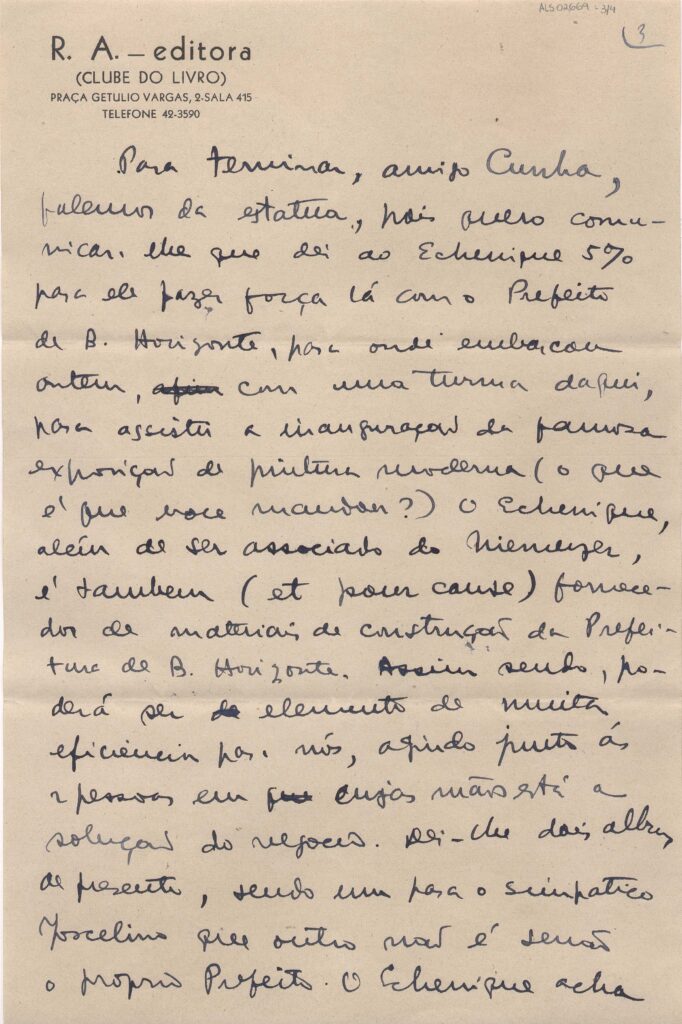 ALS02669-3/4
3
R. A. — editora
(CLUBE DO LIVRO)
PRAÇA GETULIO VARGAS, 2-SALA 415
TELEFONE 42-3590
Para terminar, amigo Cunha,
falemos da estatua, pois quero comu-
nicar-lhe que dei ao Echenique 5%
para ele fazer força lá com o Prefeito
de B. Horizonte, para onde embarcou
ontem, com uma turma daqui,
para assistir a inauguração da famosa
exposição de pintura moderna (o que
é que voce mandou?) O Echenique,
além de ser associado do Niemeyer,
é tambem (et pour cause) fornece-
dor de materiais de construção da Prefei-
tura de B. Horizonte. Assim sendo, po-
derá ser elemento de muita
eficiência para nós, agindo junto ás
2 pessoas em cujas mãos está a
solução do negocio. Dei-lhe dois albuns
de presente, sendo um para o simpatico
Joscelino que outro não é senão
o proprio Prefeito. O Echenique acha